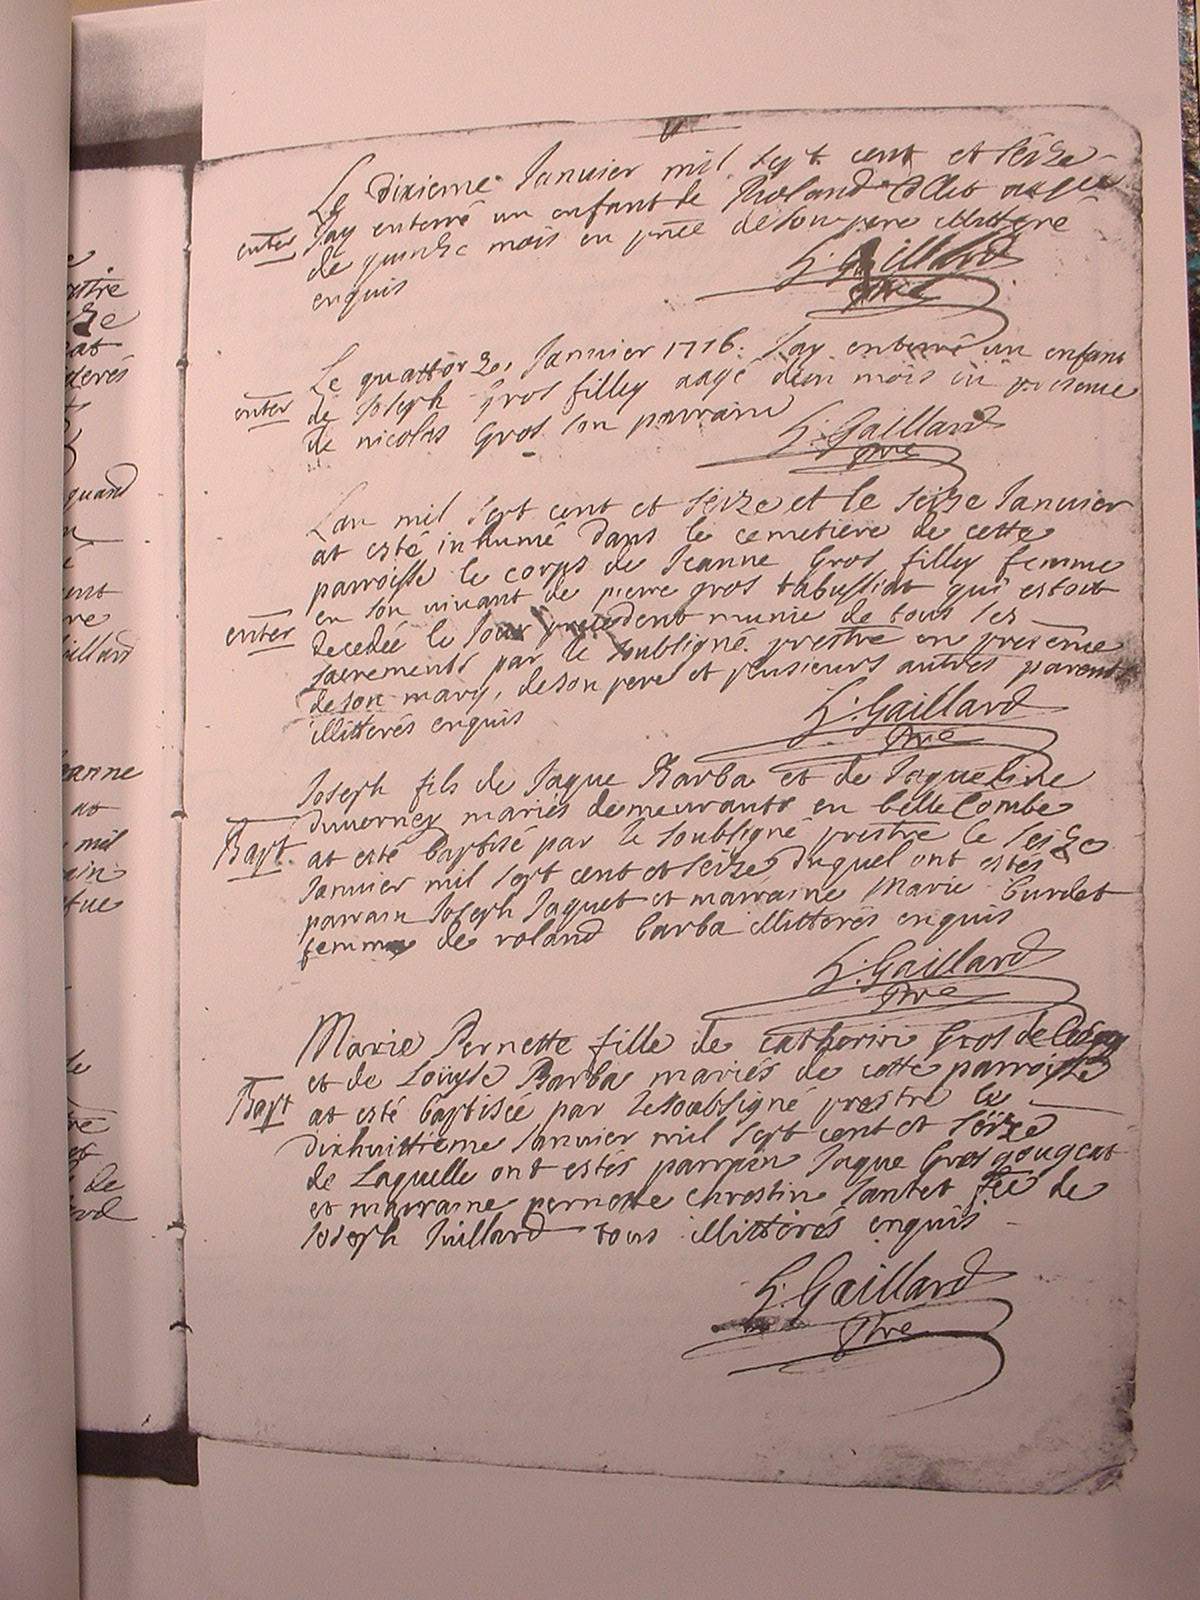 Le dixieme Janvier mil sept cent et seize
enter J'ay enterré un enfant de Roland Collet aagé
de quinze mois en pnce de son pere illitteré
enquis
G: Gaillard
Pbre
Le quattorze, Janvier 1716. J'ay enterré un enfant
enter de Joseph Gros filley aagé d'un mois en presence
de nicolas Gros son parrain
G: Gaillard
Pbre
L'an mil sept cent et seize et le seize Janvier
at esté inhumé dans le cemetiere de cette
parroisse le corps de Jeanne Gros filley femme
en son vivant de pierre gros tabussiat qui estoit
enter decedée le Jour precedent munie de tous les
sacrements par le soubsigné prestre en presence
de son mary, de son pere et plusieurs autres parents
illitterés enquis
G: Gaillard
Pbre
Joseph fils de Jaque Barba et de Jaqueline
duverney mariés demeurants en belle Combe
Bapt. at esté baptisé par le soubsigné prestre le seize
Janvier mil sept cent et seize duquel ont estés
parrain Joseph Jaquet et marraine Marie burdet
femme de roland barba illitterés enquis
G: Gaillard
Pbre
Marie Pernette fille de Catherin Gros de
et de Loüyse Barba mariés de cette parroisse
Bapt at esté baptisée par le soubsigné prestre le
dixhuittieme Janvier mil sept cent et seize
de Laquelle ont estés parrain Jaque Gros gougeat
et marraine pernette chrestin Jantet fée de
Joseph Juillard tous illitterés enquis
G: Gaillard
Pbre